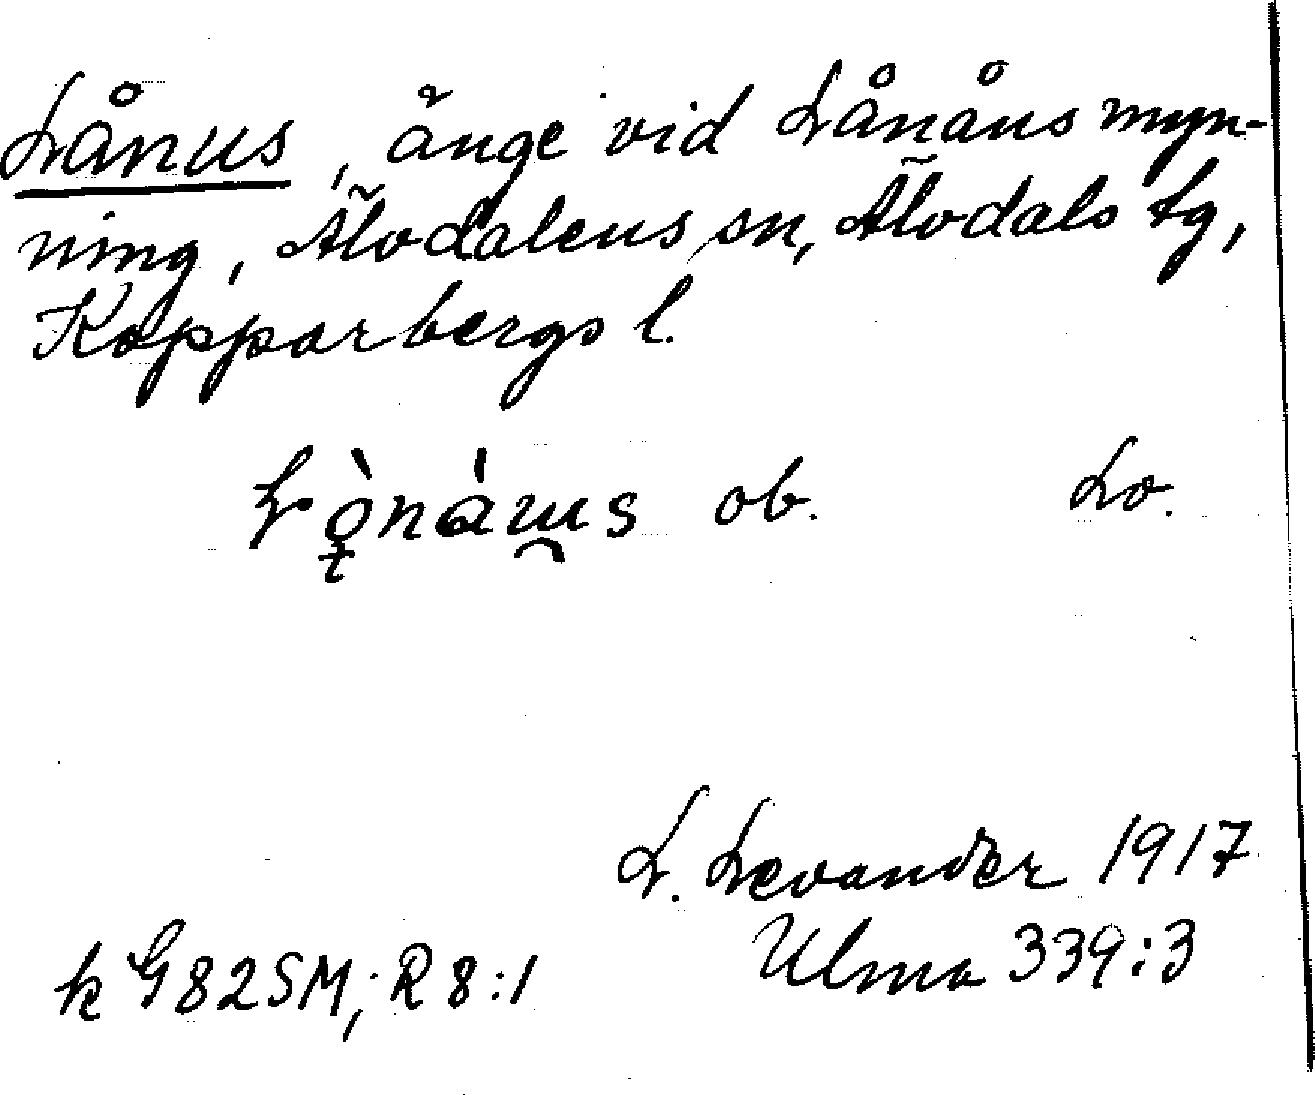 Lånus, änge vid Lånåns myn-
ning, Älvdalens sn, Älvdals tg,
Kopparbergs l.
ob. Lo.
L. Levander 1917
Ulma 339:3
k G82SM; R 8:1